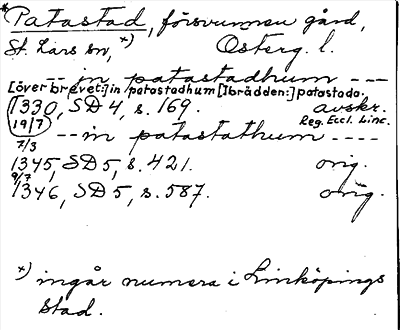 *Patastad, försvunnen gård,
St. Lars sn, *) Österg. l.
-- in patastadhum ---
[över brevet:] in patastadhum [I brädden:] patastada.
1330, SD 4, s. 169. avskr.
19/7 Reg. Eccl. Linc.
-- in patastathum ----
7/3
1345, SD 5, s. 421. orig.
9/7
1346, SD 5, s. 587. orig.
*) ingår numera i Linköpings
stad.